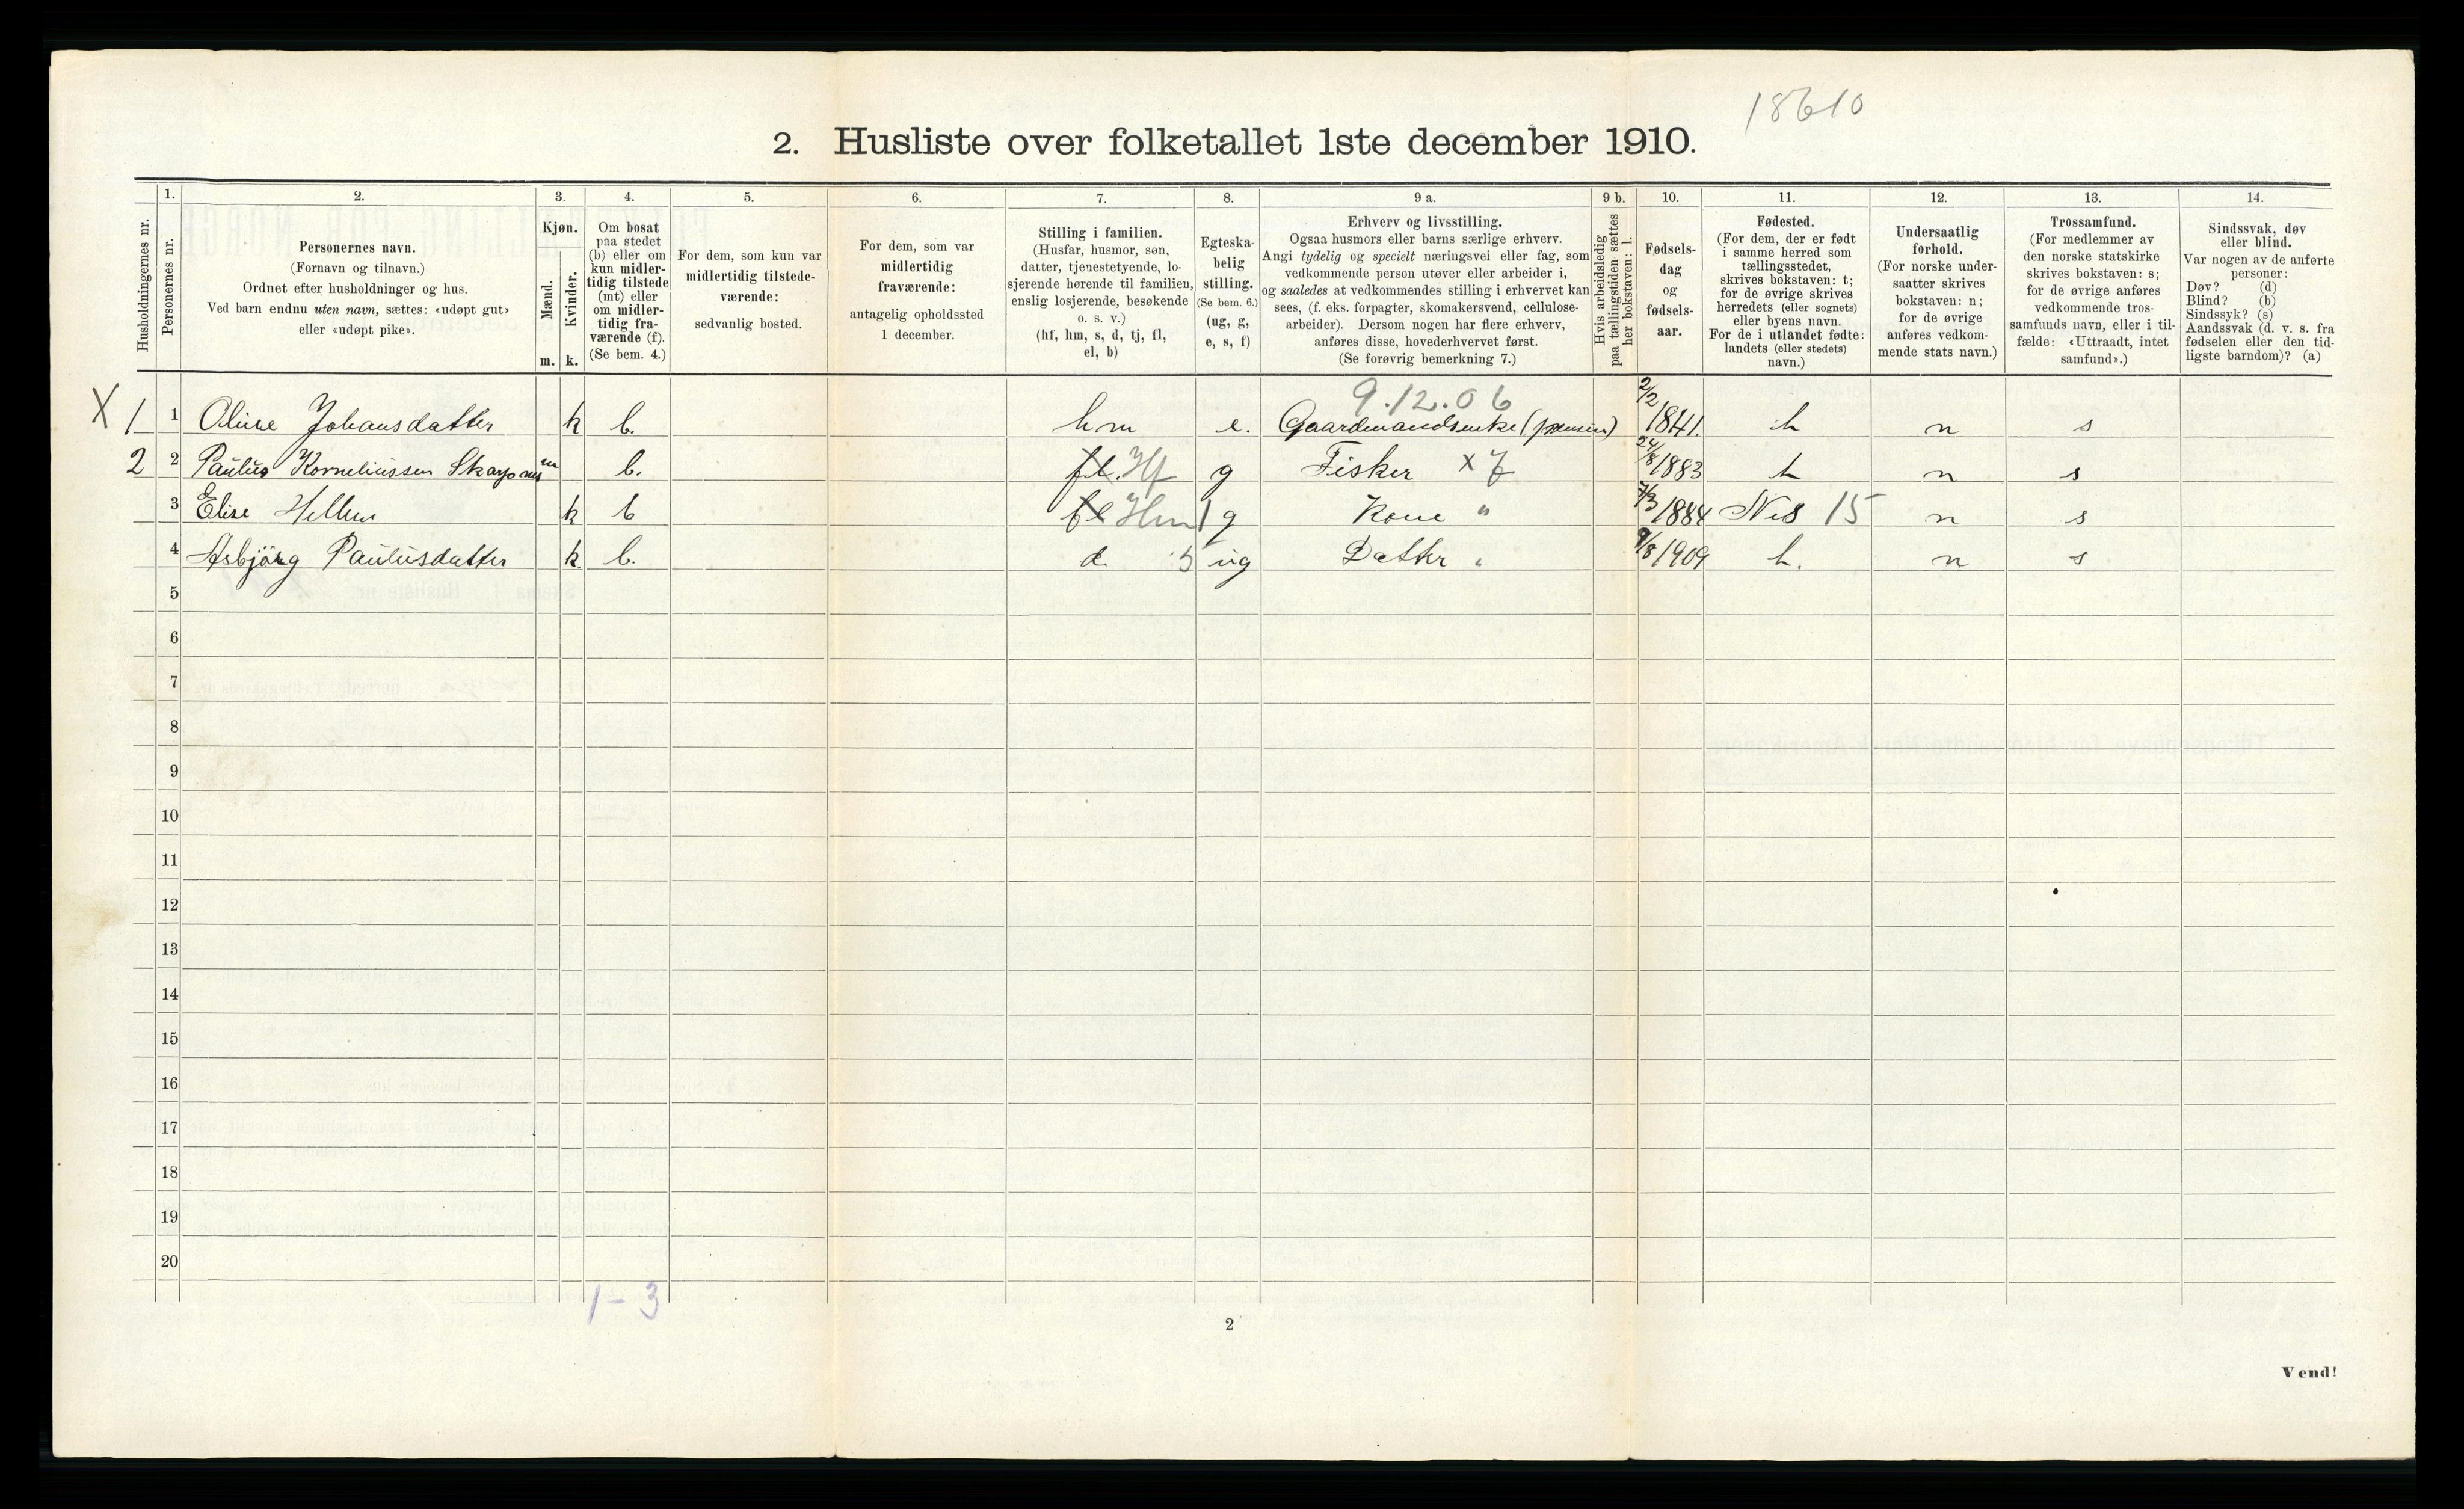 18610
2. Husliste over folketallet 1ste december 1910.
Husholdningernes nr.
1.
Personernes nr.
2.
Personernes navn.
(Fornavn og tilnavn.)
Ordnet efter husholdninger og hus.
Ved barn endnu uten navn, sættes: «udøpt gut»
eller «udøpt pike».
3.
Kjøn.
Mænd.
Kvinder.
m. k.
4.
Om bosat
paa stedet
(b) eller om
kun midler-
tidig tilstede
(mt) eller
om midler-
tidig fra-
værende (f).
(Se bem. 4.)
5.
For dem, som kun var
midlertidig tilstede-
værende:
sedvanlig bosted.
6.
For dem, som var
midlertidig
fraværende:
antagelig opholdssted
1 december.
7.
Stilling i familien.
(Husfar, husmor, søn,
datter, tjenestetyende, lo-
sjerende hørende til familien,
enslig losjerende, besøkende
o. s. v.)
(hf, hm, s, d, tj, fl,
el, b)
8.
Egteska-
belig
stilling.
(Se bem. 6.)
(ug, g,
e, s, f)
9 a.
Erhverv og livsstilling.
Ogsaa husmors eller barns særlige erhverv.
Angi tydelig og specielt næringsvei eller fag, som
vedkommende person utøver eller arbeider i,
og saaledes at vedkommendes stilling i erhvervet kan
sees, (f. eks. forpagter, skomakersvend, cellulose-
arbeider). Dersom nogen har flere erhverv,
anføres disse, hovederhvervet først.
(Se forøvrig bemerkning 7.)
9 b.
Hvis arbeidsledig
paa tællingstiden sættes
her bokstaven: l.
10.
Fødsels-
dag
og
fødsels-
aar.
11.
Fødested.
(For dem, der er født
i samme herred som
tællingsstedet,
skrives bokstaven: t;
for de øvrige skrives
herredets (eller sognets)
eller byens navn.
For de i utlandet fødte:
landets (eller stedets)
navn.)
12.
Undersaatlig
forhold.
(For norske under-
saatter skrives
bokstaven: n;
for de øvrige
anføres vedkom-
mende stats navn.)
13.
Trossamfund.
(For medlemmer av
den norske statskirke
skrives bokstaven: s;
for de øvrige anføres
vedkommende tros-
samfunds navn, eller i til-
fælde: «Uttraadt, intet
samfund».)
14.
Sindssvak, døv
eller blind.
Var nogen av de anførte
personer:
Døv? (d)
Blind? (b)
Sindssyk? (s)
Aandssvak (d. v. s. fra
fødselen eller den tid-
ligste barndom)? (a)
9.12.06
X 1 1 Oline Johansdatter k b. hm e. Gaardmandsenke (pension) 2/2 1841. t n s
2 2 Paulus Korneliussen Skarpnes m b. fl. Hf g Fisker x 7 24/8 1883 t n s
3 Elise Hellen k b fl Hm 1 g Kone " 7/3 1884 Nes 15 n s
4 Asbjörg Paulusdatter k b. d. 5 ug Datter " 9/8 1909 t. n s
5
6
7
8
9
10
11
12
13
14
15
16
17
18
19
20
1 - 3
2
Vend!